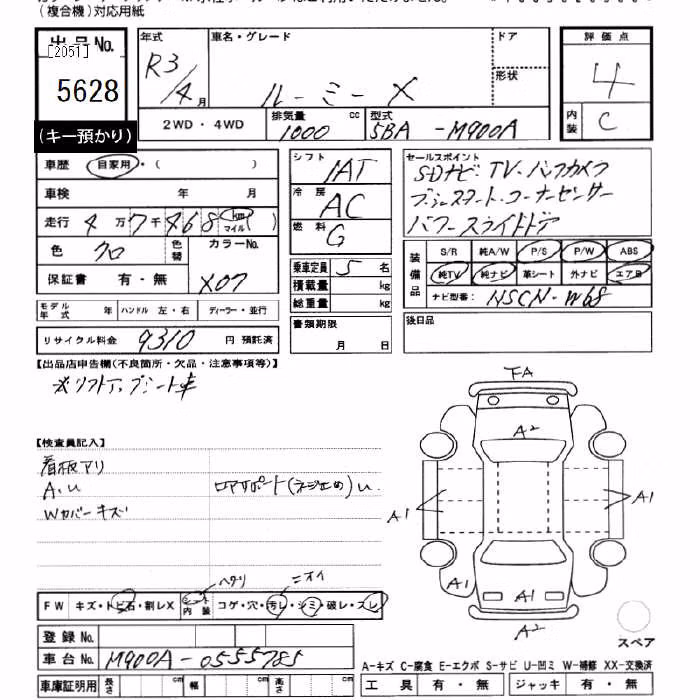 (複合機)対応用紙
出品No. [2051]
5628
(キー預かり)
年式 R3/4月
車名・グレード ルーミー X
ドア
形状
評価点 4
内装 C
2WD・4WD
排気量 1000 cc
型式 5BA -M900A
車歴 自家用・( )
車検 年 月
走行 4万7千468 km マイル ( )
色 クロ 色替 カラーNo. X07
保証書 有・無
モデル年式 年 ハンドル 左・右 ディーラー・並行
リサイクル料金 9310 円 預託済
シフト IAT
冷房 AC
燃料 G
乗車定員 5 名
積載量 kg
総重量 kg
書類期限 月 日
セールスポイント
SDナビ・TV・バックカメラ
プッシュスタート・コーナーセンサー
パワースライドドア
装備品 S/R 純A/W P/S P/W ABS
純TV 純ナビ 革シート 外ナビ エアB
ナビ型番: NSCN-W68
後日品
【出品店申告欄(不良箇所・欠品・注意事項等)】
※リフトアップシート車
【検査員記入】
看板アリ
A.U ロアサポート(ネジ止め)U.
Wカバーキズ
FW キズ・トビ石・割レX シート内装 コゲ・穴・汚レ・シミ・破レ・スレ
ヘタリ ニオイ
登録No.
車台No. M900A-0555785
車庫証明用 長さ cm 幅 cm 高さ cm
FA
A2
A1
A1
A1
A1
A2
スペア
A-キズ C-腐食 E-エクボ S-サビ U-凹ミ W-補修 XX-交換済
工具 有・無 ジャッキ 有・無